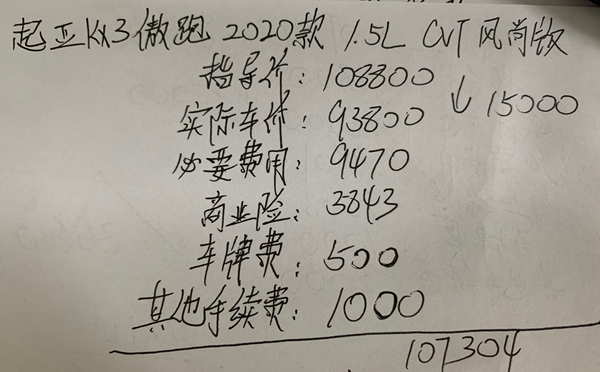 起亚KX3傲跑 2020款 1.5L CVT 风尚版
指导价：108800
↓15000
实际车价：93800
必要费用：9470
商业险：3843
车牌费：500
其他手续费：1000
107304